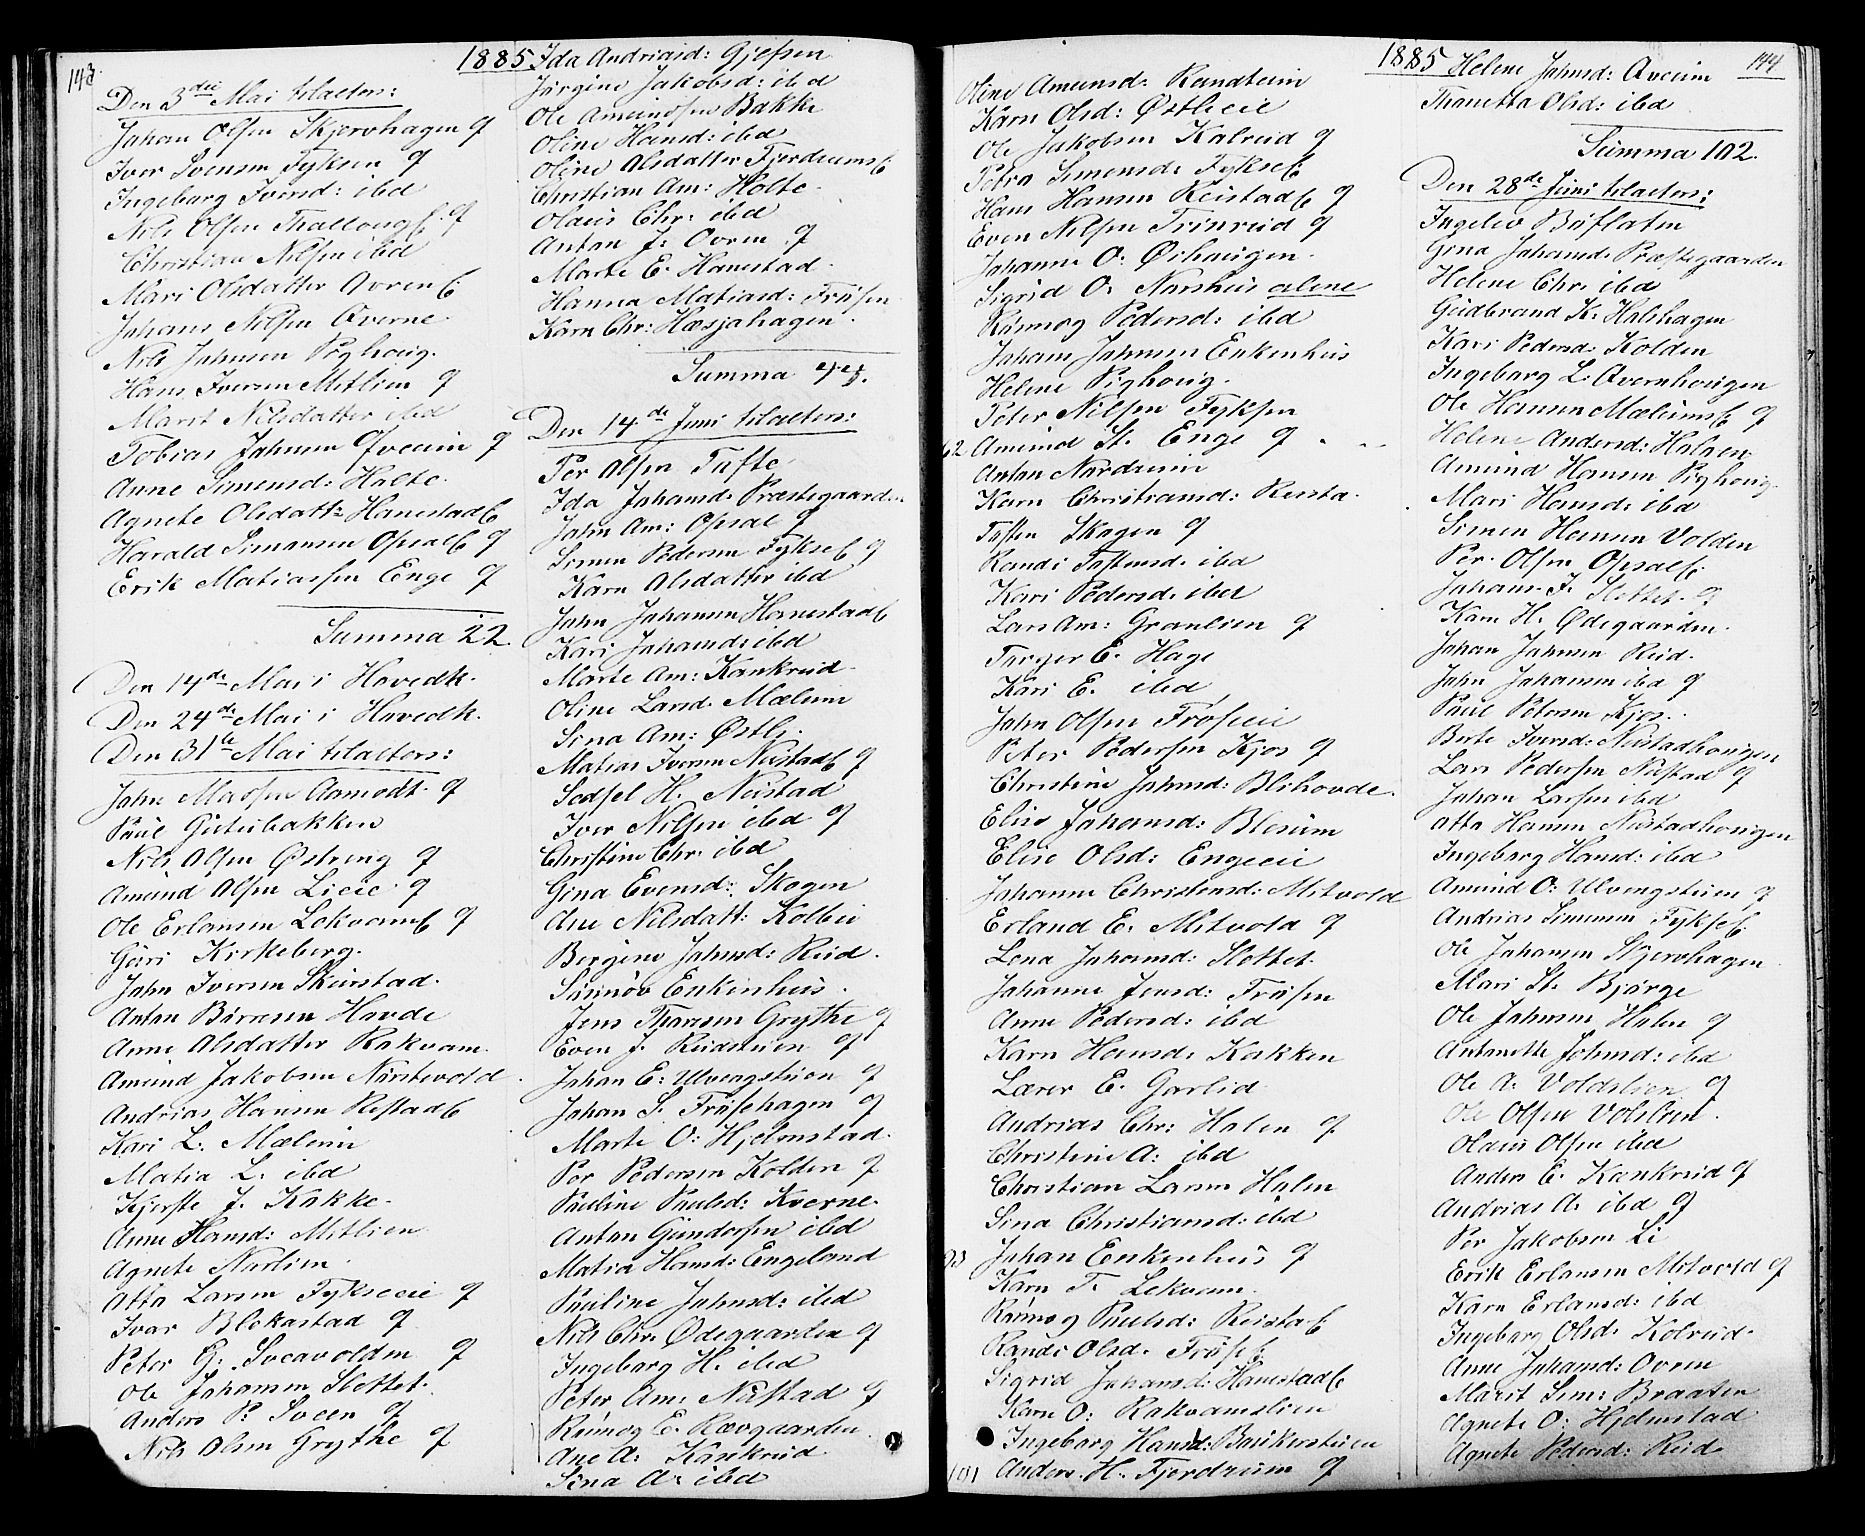 143.
1885
Den 3die Mai tilalters:
Johan Olsen Skjervhagen g
Iver Svensen Fyksen g
Ingeborg Iversd: ibd
Nils Olsen Thallaug g
Christian Nilsen ibd
Mari Olsdatter Ovren
Johans Nilsen Qverne
Nils Johnsen Pighoug.
Hans Iversen Mitlien g
Marit Nilsdatter ibd
Tobias Johnsen Qveum g
Anne Simensd: Holte.
Agnete Olsdatt: Hanestad
Harald Simensen Opsal g
Erik Matiassen Enge g
Summa 22.
Den 14de Mai i Hovedk.
Den 24de Mai i Hovedk.
Den 31te Mai tilalters:
John Aamodt g
Paul
Nils Olsen Østeng g
Amund Olsen Lieie g
Ole Erlansen Lekvam g
Guri Kirkeberg.
John Iversen Skurstad.
Anton Hovde
Anne Olsdatter Rakvam.
Amund Jakobsen Nürstevold
Andrias Hansen Restad
Kari L. Mælum
Matia L. ibd
Kjerste J. Kakke.
Anne Hansd: Mitlien
Agnete Narlien.
Otto Larsen Fykseeie g
Ivar Blekastad g
Peter G. Sveavolden g
Ole Johansen Slottet.
Anders P. Sveen g
Nils Olsen Grythe g
Ida Andriasd: Gjefsen
Jørgine Jakobsd: ibd
Ole Amundsen Bakke
Oline Hansd: ibd
Oline Olsdatter Fjerdrum
Christian Am: Holte.
Olaus Chr: ibd
Anton J. Ovren g
Marte E. Hanestad.
Hanna Matiasd: Frøsen
Karn Chr: Hæsjahagen.
Summa 45.
Den 14de Juni tilalters:
Per Olsen Tufte.
Ida Johansd: Præstegaarden
John Am: Opsal g
Simen Pedersen Fykse g
Karn Olsdatter ibd
John Johansen Hanestad
Kari Johansd: ibd
Marte Am: Kankrud.
Oline Larsd. Mælum
Sina Am: Østli.
Matias Iversen Nustad g
Sedsel H. Nustad
Iver Nilsen ibd g
Christine Chr. ibd
Gina Evensd: Skogen
Ane Nilsdatt: Kolbu
Bergine Johnsd: Rud.
Sünnøv Enkenhus.
Jens Thoresen Grythe g
Even J. Rudstuen g
Johan E: Ulvengstuen g
Johan S. Frøsehagen g
Marte O: Hjelmstad.
Per Pedersen Kolden g
Pauline Paulsd: Kverne.
Anton Gundersen ibd
Matia Hansd: Engeland
Pauline Johnsd: ibd
Nils Chr. Ødegaarden g
Ingeborg H. ibd
Peter Am: Nustad g
Rønnog E. Rævgaarden.
Ane A: Kankrud.
Sina A: ibd
Oline Amunsd. Randheim
Karn Olsd: Østlieie
Ole Jakobsen Kalrud g
Petra Simensd. Fykse
Hans Hansen Reistad g
Even Nilsen Trinrud g
Johanne O: Ørhougen.
Sigrid O: Narshus alene
Rønnog Pedersd: ibd
Johans Johnsen Enkenhus
Helene Pighoug.
Peter Nilsen Fyksen
62 Amund St. Enge g
Anton Nordrum
Karn Christiansd: Reista.
Tosten Skogen g
Randi Tostensd. ibd
Kari Pedersd. ibd
Lars Am: Granlien g
Torger E. Hage
Kari E. ibd
John Olsen Frøseie
Peter Pedersen Kjos g
Christine Johnsd: Blihovde.
Elise Johansd: Blesum
Elise Olsd: Engeeie
Johanne Christensd: Mitvold
Erland E. Mitvold g
Lena Johansd: Slottet.
Johanne Jensd: Frøsen
Anne Pedersd: ibd
Karn Hansd. Kakken
Lærer E. Garlid
Andrias Chr: Holen g
Christine A: ibd
Christian Larsen Holen
Sina Christiansd: ibd
93 Johan Enkenhus g
Karn T. Lekvam.
Rønnog Paulsd: Reista
Randi Olsd. Frøse
Sigrid Johansd: Hanestad
Karn O: Rakvamslien
Ingeborg Hansd: Bankerstuen
101 Anders H. Fjerdrum g
1885
144
Helene Johnsd: Qveum
Thonetta Olsd: ibd
Summa 102.
Den 28de Juni tilalters:
Ingelev Bøflaten
Gina Johansd. Præstegaarden
Helene Chr. ibd
Gudbrand K. Holshagen
Kari Pedersd. Kolden
Ingeborg L: Qvernhougen
Ole Hansen Mælum g
Helene Andersd: Holaen
Amund Hansen Pighoug.
Mari Hansd: ibd
Simen Hansen Volden
Per Olsen Opsal
Johans J. Slottet. g
Karn H. Ødegaarden.
Johan Johnsen Rud.
John Johansen ibd g
Paul Petersen Kjos.
Berte Iversd: Nustadhougen
Lars Pedersen Nustad g
Johan Larsen ibd
Otto Hansen Nustadhougen
Ingeborg Hansd: ibd
Amund O: Ulvengstuen g
Andrias Simensen Fykse
Ole Johansen Skjervhagen
Mari St. Bjørge
Ole Johnsen Holen g
Antonette Johnsd: ibd
Ole A: Voldslien g
Ole Olsen Volslien.
Olaus Olsen ibd
Anders E. Kankrud g
Andrias A. ibd g
Per Jakobsen Li
Erik Erlansen Mitvold g
Karn Erlansd: ibd
Ingeborg Olsd. Kolrud.
Anne Johansd: Ovren
Marit Sim: Braaten
Agnete O: Hjelmstad
Agnete Pedersd: Rud